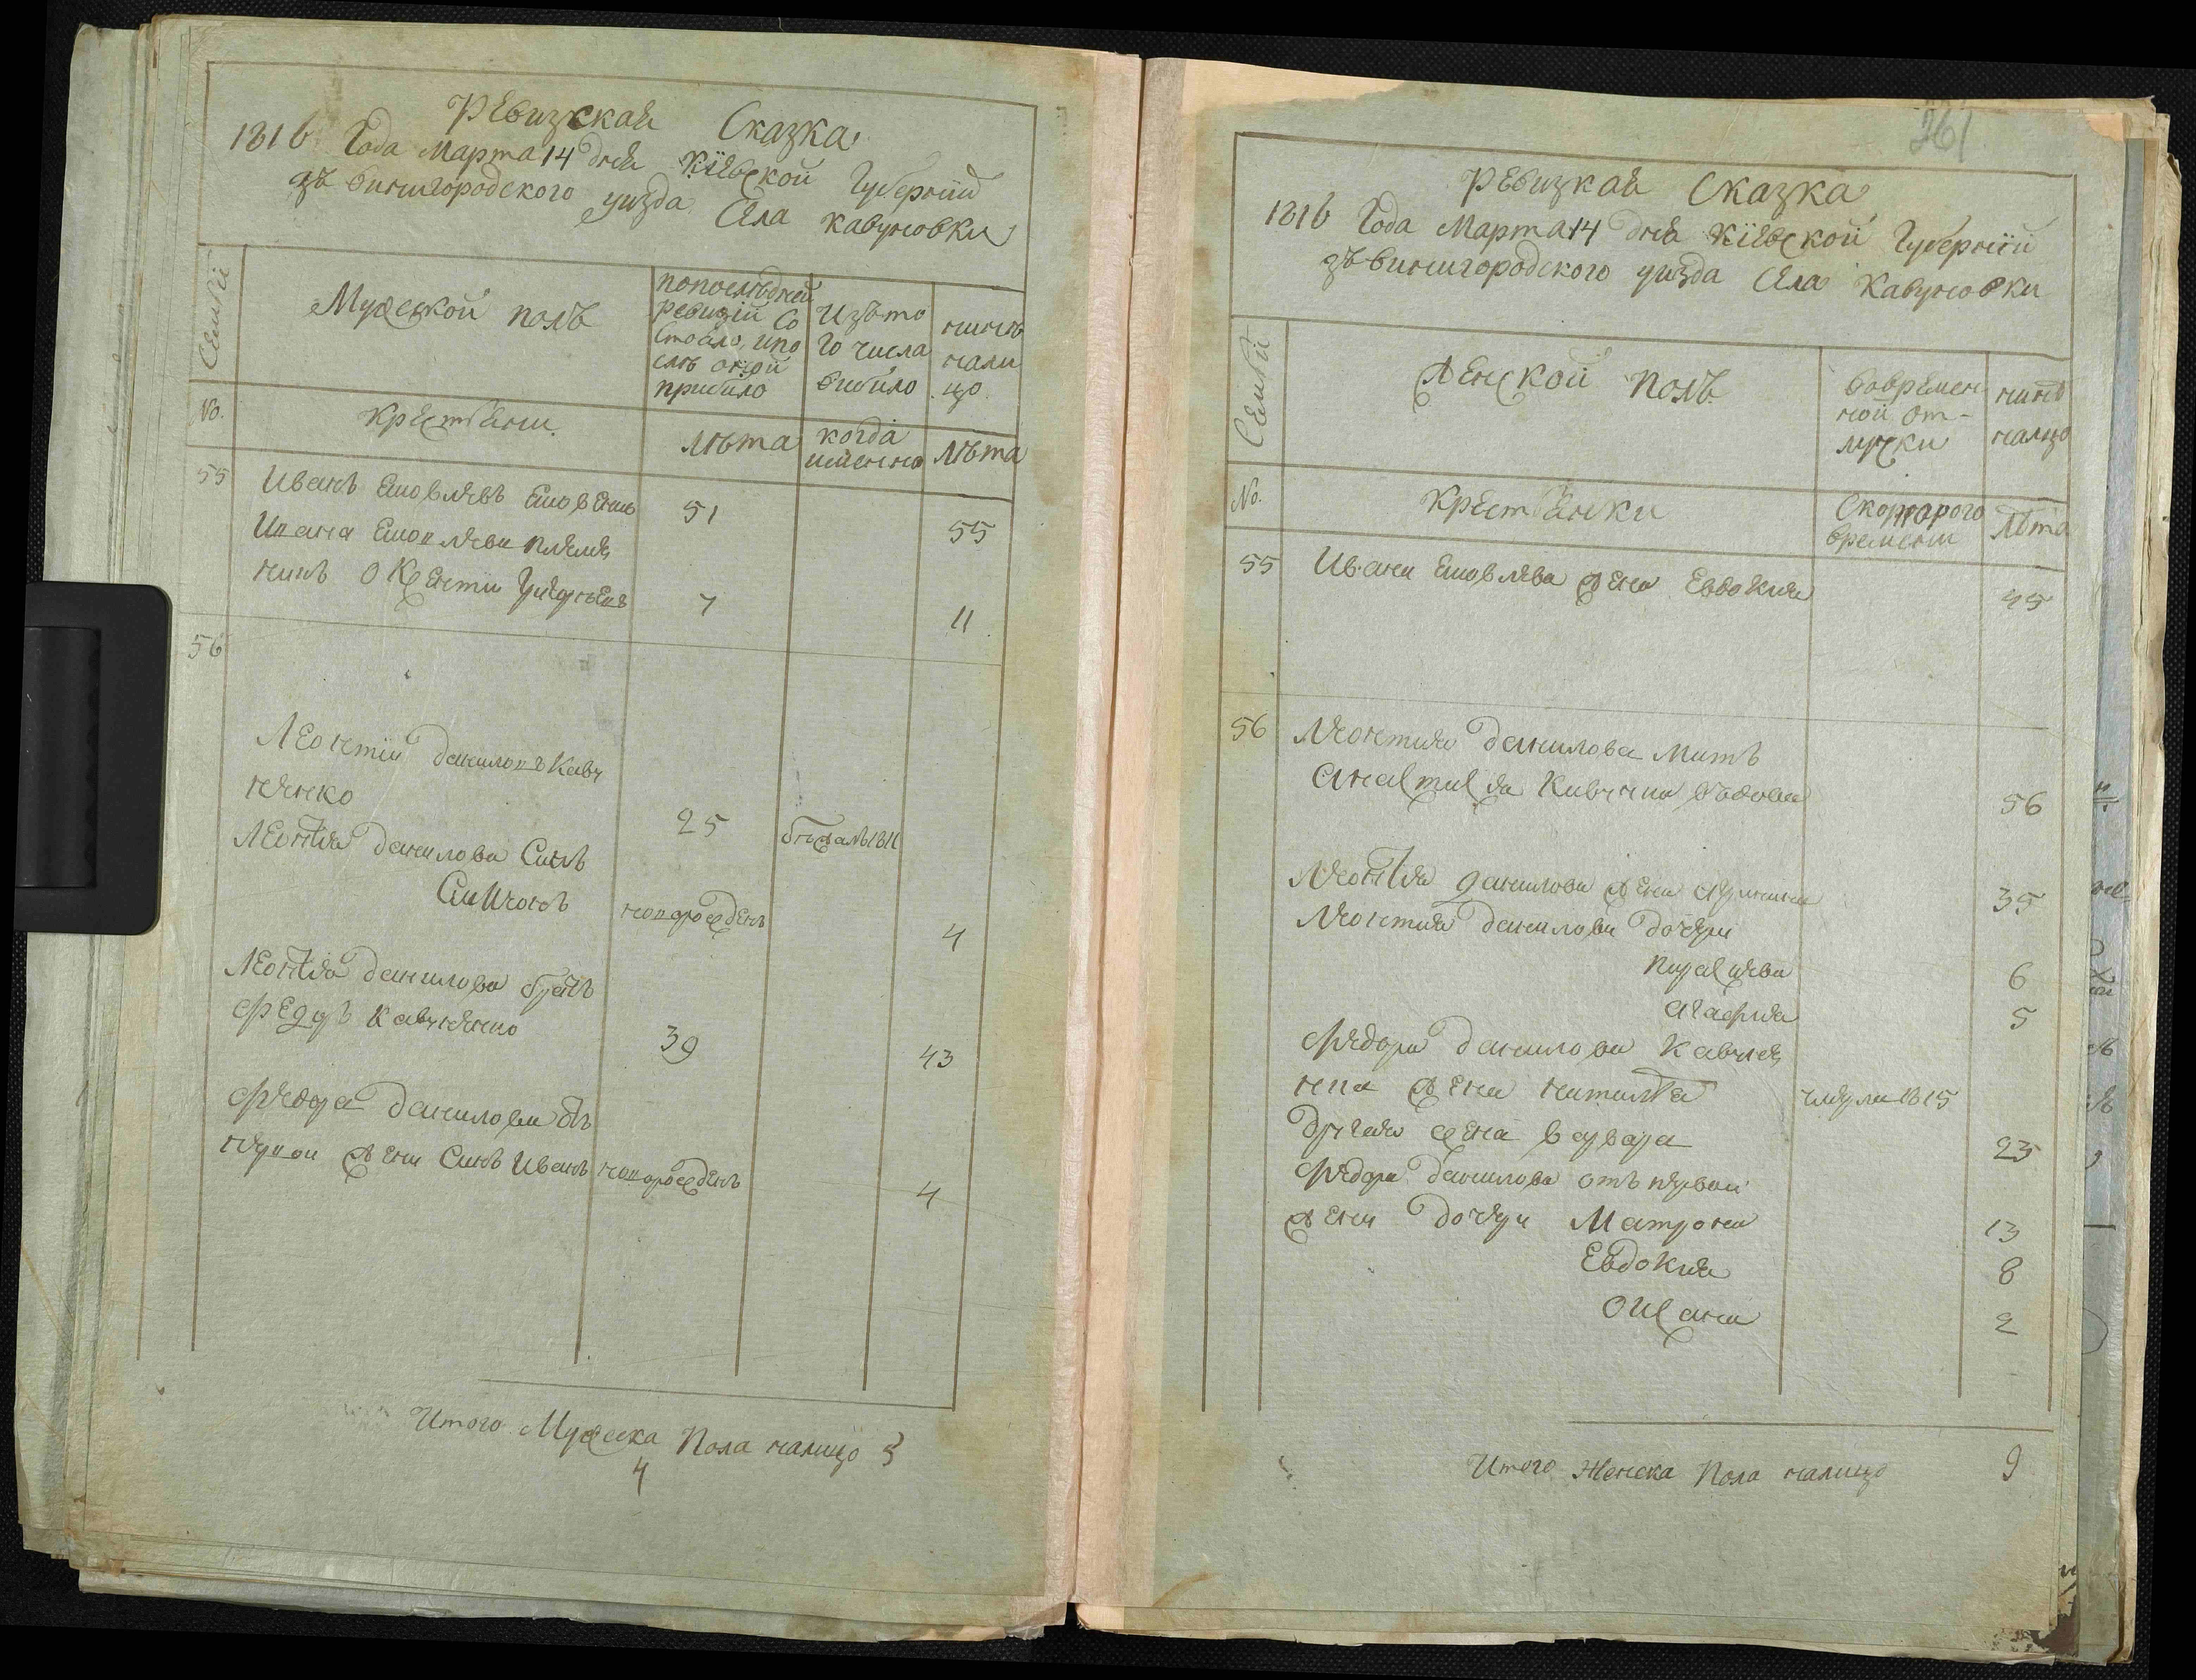 Ревизская Сказка
1816 Года Марта 14 дня Кіевской Губерніи
звинигородского уизда Села Кавуновки
Семьи
Мужеской полъ
попослѣдней
ревизіи Со
стояло, ипо
слѣ оной
прибило
Изъто
го числа
вибило
нинѣ
нали
цо
No.
крестьяни
лѣта
когда
именно
лѣта
55
Иванъ
51
55
Ивана племя
никъ
7
11
56
Леонтій Даниловъ Каву
ненко
25
1811
Леонтія Данилова Синъ
Симионъ
новорожденъ
4
Леонтія Данилова братъ
Федоръ Кавуненко
39
43
Федора Данилова отъ
первой жени Синъ Иванъ
новорожденъ
4
Итого Мужеска Пола налицо 3
4
361
Ревизкая Сказка
1816 Года Марта 14 дня Кіевской Губерніи
звинигородского уизда Села Кавуновки
Семьи
Женской полъ
вовремен
ной от-
лучки
нинѣ
налицо
No.
Крестьянки
Скоторого
времени
Лѣта
55
Ивана жена Евдокия
45
56
Леонтия Данилова Мать
Анастасия вдова
56
Леонтія Данилова жена
35
Леонтия Данилова дочери
Параскева
6
Агафия
5
Федора Данилова Кавуне
нка жена
1815
Другая жена варвара
23
Федора Данилова отъ первой
жени дочери Матрона
13
Евдокия
8
Оксана
2
Итого Женска Пола налицо
9